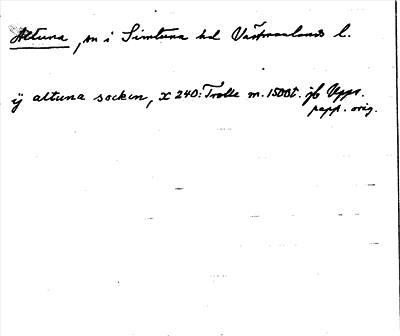 Altuna, sn i Simtuna hd Västmanlands l.
ÿ altuna socken, x 240: Trolle m. 1500t. jfr Upps.
papp. orig.